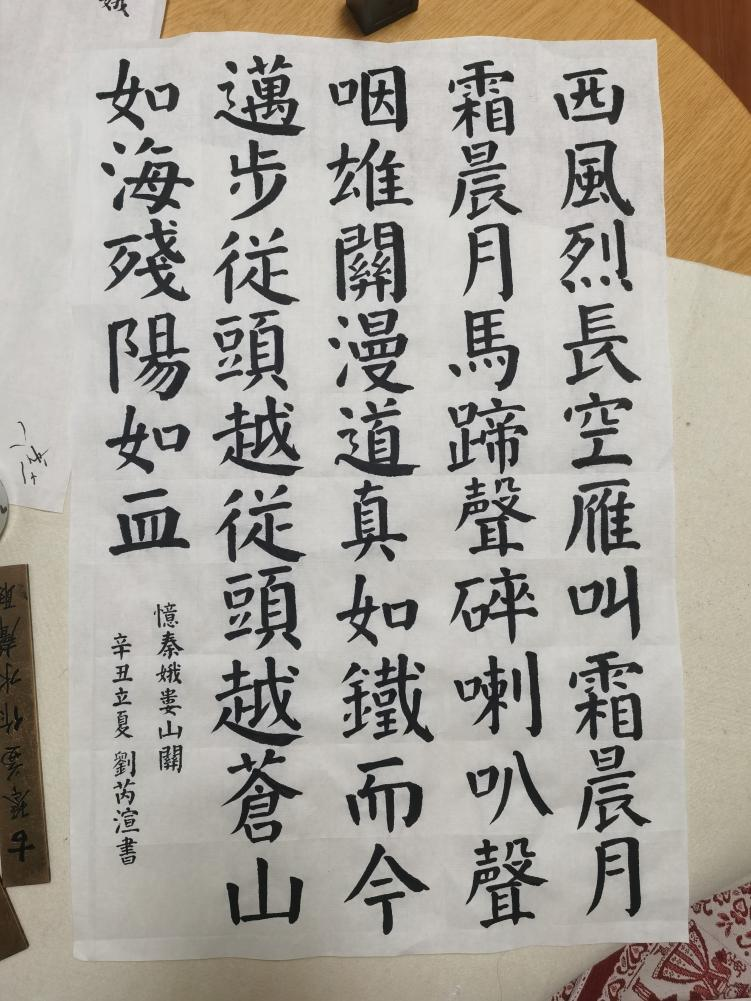 西風烈長空雁叫霜晨月
霜晨月馬蹄聲碎喇叭聲
咽雄關漫道真如鐵而今
邁步従頭越従頭越蒼山
如海殘陽如血
憶秦娥婁山關
辛丑立夏 劉芮渲書
娥